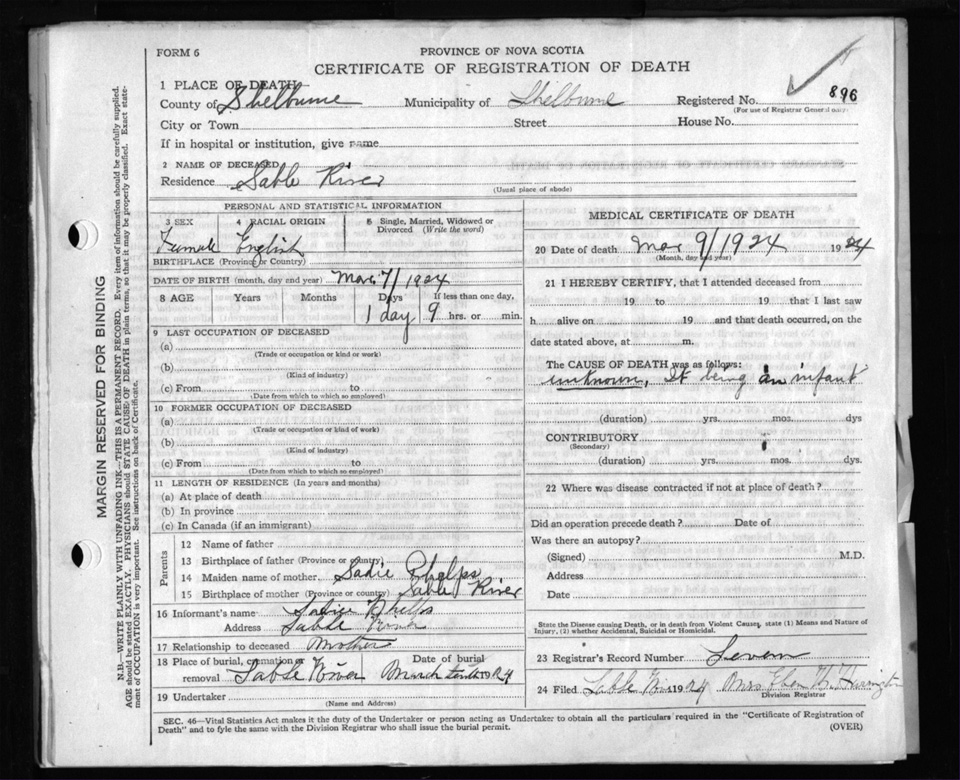 FORM 6
PROVINCE OF NOVA SCOTIA
CERTIFICATE OF REGISTRATION OF DEATH
1 PLACE OF DEATH
County of Shelburne Municipality of Shelburne Registered No. 896
(For use of Registrar General only)
City or Town Street House No.
If in hospital or institution, give name
2 NAME OF DECEASED
Residence Sable River
(Usual place of abode)
PERSONAL AND STATISTICAL INFORMATION
3 SEX 4 RACIAL ORIGIN 5 Single, Married, Widowed or Divorced (Write the word)
Female English
BIRTHPLACE (Province or Country)
DATE OF BIRTH (month, day and year) Mar 7/1924
8 AGE Years Months Days If less than one day,
1 day 9 hrs. or min.
9 LAST OCCUPATION OF DECEASED
(a)
(Trade or occupation or kind or work)
(b)
(Kind of industry)
(c) From to
(Date from which to which so employed)
10 FORMER OCCUPATION OF DECEASED
(a)
(Trade or occupation or kind or work)
(b)
(Kind of industry)
(c) From to
(Date from which to which so employed)
11 LENGTH OF RESIDENCE (In years and months)
(a) At place of death
(b) In province
(c) In Canada (if an immigrant)
Parents
12 Name of father
13 Birthplace of father (Province or country)
14 Maiden name of mother. Sadie Phelps
15 Birthplace of mother (Province or country) Sable River
16 Informant's name Sadie Phelps
Address Sable River
17 Relationship to deceased Mother
18 Place of burial, cremation or removal Sable River Date of burial March tenth 1924
19 Undertaker
(Name and Address)
MEDICAL CERTIFICATE OF DEATH
20 Date of death Mar 9/1924 1924
(Month, day and year)
21 I HEREBY CERTIFY, that I attended deceased from
19 to 19 that I last saw
h alive on 19 and that death occurred, on the
date stated above, at m.
The CAUSE OF DEATH was as follows:
unknown, It being an infant
(duration) yrs. mos. dys
CONTRIBUTORY
(Secondary)
(duration) yrs. mos. dys.
22 Where was disease contracted if not at place of death?
Did an operation precede death? Date of
Was there an autopsy?
(Signed) M.D.
Address
Date
State the Disease causing Death, or in death from Violent Causes, state (1) Means and Nature of
Injury, (2) whether Accidental, Suicidal or Homicidal.
23 Registrar's Record Number Seven
24 Filed Sable 1924 Mrs Eben Harrington
Division Registrar
SEC. 46—Vital Statistics Act makes it the duty of the Undertaker or person acting as Undertaker to obtain all the particulars required in the "Certificate of Registration of
Death" and to fyle the same with the Division Registrar who shall issue the burial permit. (OVER)
MARGIN RESERVED FOR BINDING
N.B.—WRITE PLAINLY WITH UNFADING INK—THIS IS A PERMANENT RECORD. Every item of information should be carefully supplied.
AGE should be stated EXACTLY. PHYSICIANS should STATE CAUSE OF DEATH in plain terms, so that it may be properly classified. Exact state-
ment of OCCUPATION is very important. See instructions on back of Certificate.